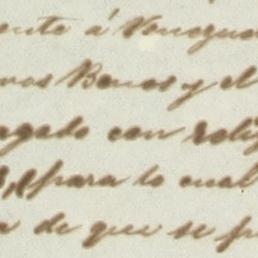 ente á Venezue
nos Benos y el
agado con relig
, para lo cual
a de que se p